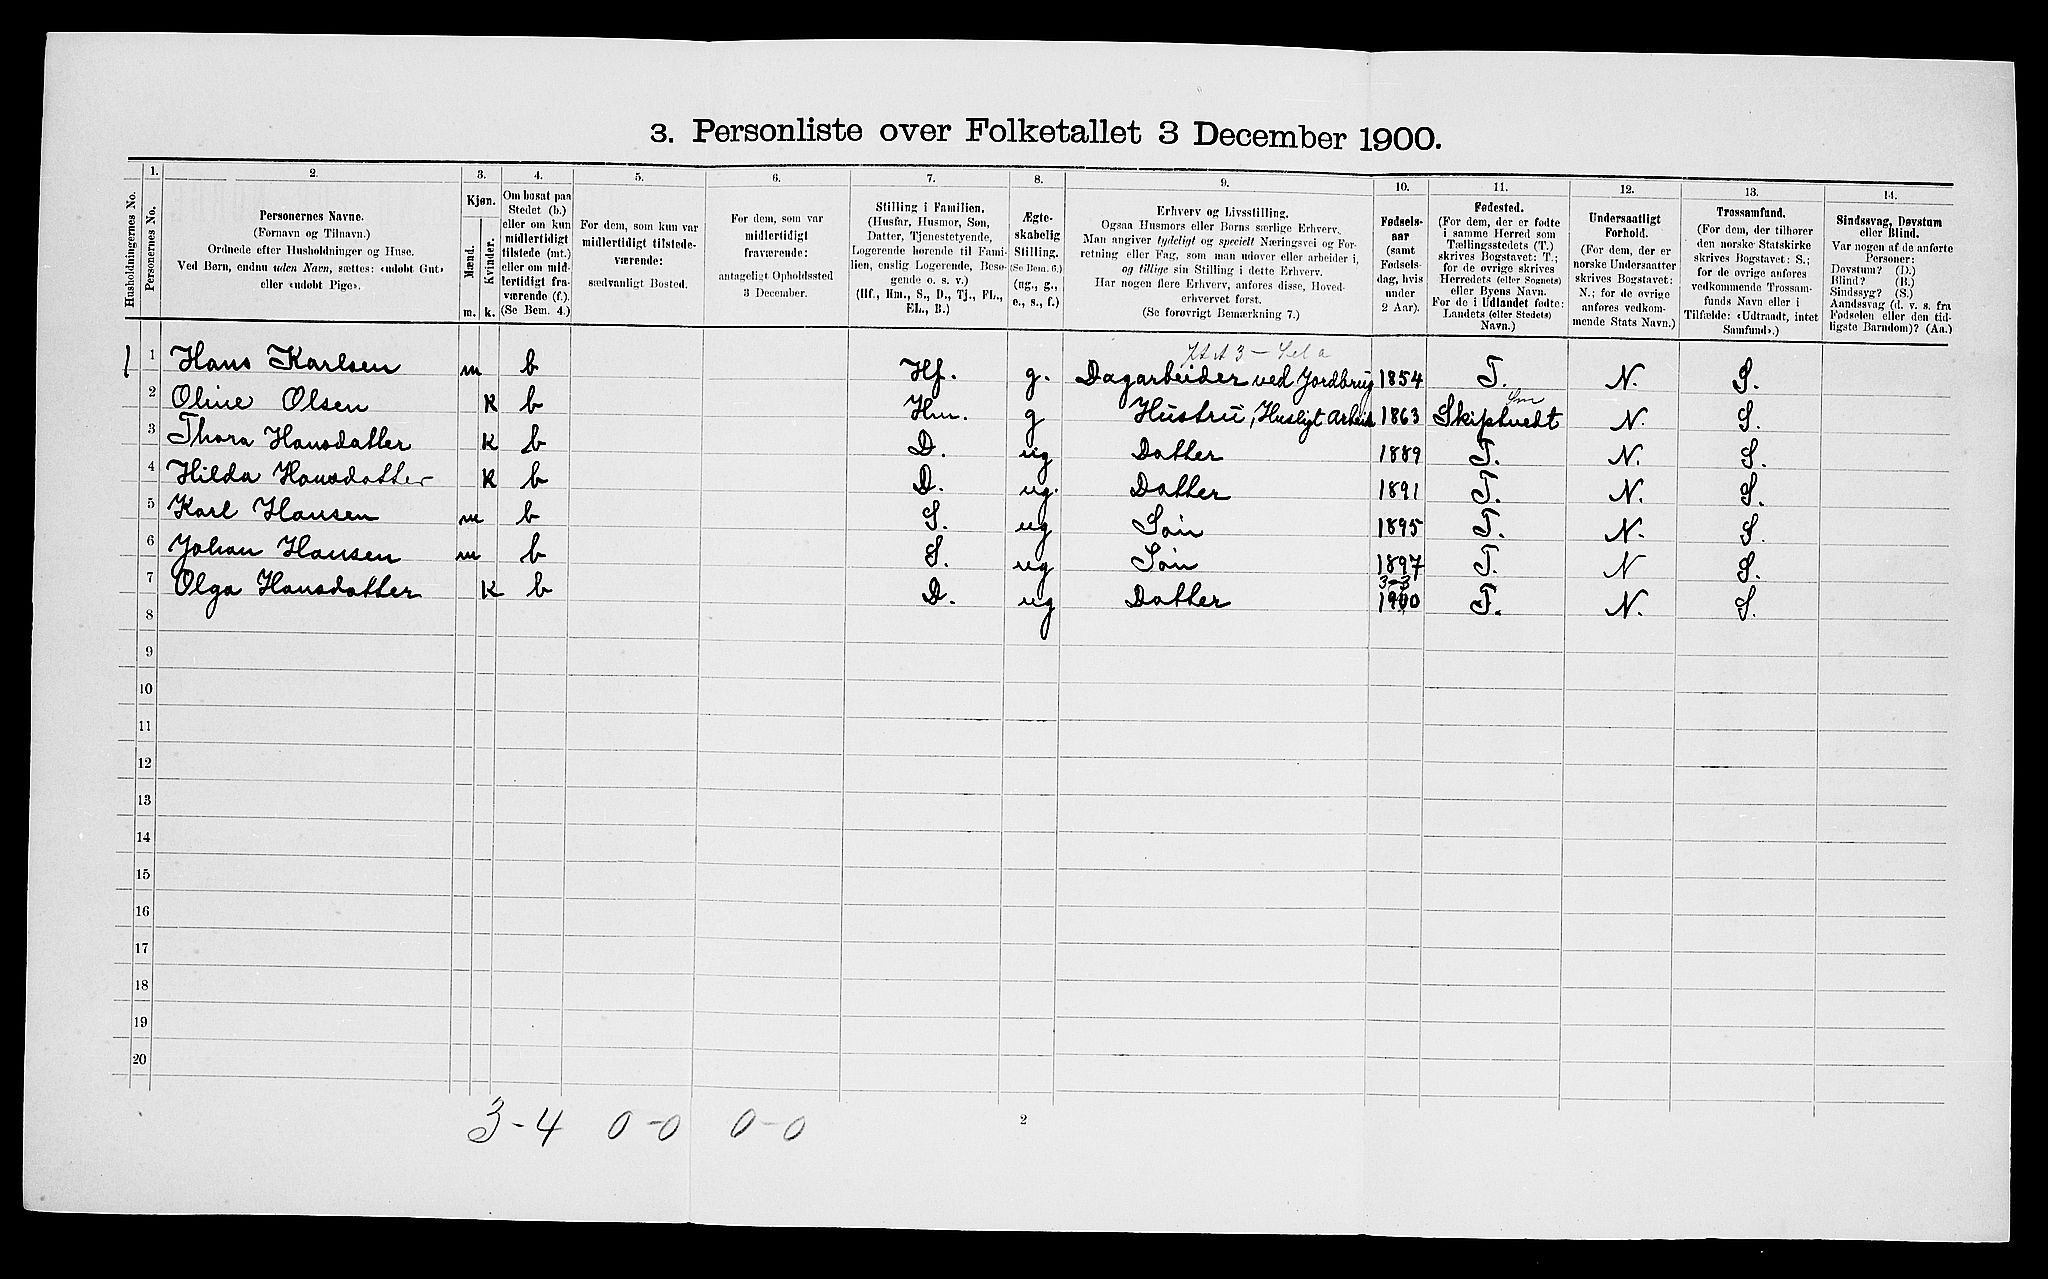 3. Personliste over Folketallet 3 December 1900.
Husholdningernes No.
1. Personernes No.
2. Personernes Navne.
(Fornavn og Tilnavn.)
Ordnede efter Husholdninger og Huse.
Ved Børn, endnu uden Navn, sættes: «udøbt Gut»
eller «udøbt Pige».
3. Kjøn.
Mænd. m.
Kvinder. k.
4. Om bosat paa
Stedet (b.)
eller om kun
midlertidigt
tilstede (mt.)
eller om mid-
lertidigt fra-
værende (f.).
(Se Bem. 4.)
5. For dem, som kun var
midlertidigt tilstede-
værende:
sædvanligt Bosted.
6. For dem, som var
midlertidigt
fraværende:
antageligt Opholdssted
3 December.
7. Stilling i Familien.
(Husfar, Husmor, Søn,
Datter, Tjenestetyende,
Logerende hørende til Fami-
lien, enslig Logerende, Besø-
gende o. s. v.)
(Hf., Hm., S., D., Tj., FL.,
EL., B.)
8. Ægte-
skabelig
Stilling.
(Se Bem. 6.)
(ug., g.,
e., s., f.)
9. Erhverv og Livsstilling.
Ogsaa Husmors eller Børns særlige Erhverv.
Man angiver tydeligt og specielt Næringsvei og For-
retning eller Fag, som man udøver eller arbeider i,
og tillige sin Stilling i dette Erhverv.
Har nogen flere Erhverv, anføres disse, Hoved-
erhvervet først.
(Se forøvrigt Bemærkning 7.)
10. Fødsels-
aar
(samt
Fødsels-
dag, hvis
under
2 Aar).
11. Fødested.
(For dem, der er fødte
i samme Herred som
Tællingsstedets (T.)
skrives Bogstavet: T.;
for de øvrige skrives
Herredets (eller Sognets)
eller Byens Navn.
For de i Udlandet fødte:
Landets (eller Stedets)
Navn.)
12. Undersaatligt
Forhold.
(For dem, der er
norske Undersaatter
skrives Bogstavet:
N.; for de øvrige
anføres vedkom-
mende Stats Navn.)
13. Trossamfund.
(For dem, der tilhører
den norske Statskirke
skrives Bogstavet: S.;
for de øvrige anføres
vedkommende Trossam-
funds Navn eller i
Tilfælde: «Udtraadt, intet
Samfund».)
14. Sindssvag, Døvstum
eller Blind.
Var nogen af de anførte
Personer:
Døvstum? (D.)
Blind? (B.)
Sindssyg? (S.)
Aandssvag (d. v. s. fra
Fødselen eller den tid-
ligste Barndom)? (Aa.)
1 Hans Karlsen m b Hf. g. Dagarbeider ved Jordbrug 1854 T. N. S.
2 Oline Olsen K b Hm. g Hustru, Husligt Arbeid 1863 Skiptvedt N. S.
3 Thora Hansdatter K b D. ug Datter 1889 T. N. S.
4 Hilda Hansdatter K b D. ug. Datter 1891 T. N. S.
5 Karl Hansen m b S. ug Søn 1895 T. N. S.
6 Johan Hansen m b S. ug Søn 1897 T. N S.
7 Olga Hansdatter K b D. ug Datter 3-3 1900 T. N. S.
8
9
10
11
12
13
14
15
16
17
18
19
20
3-4 0-0 0-0
2